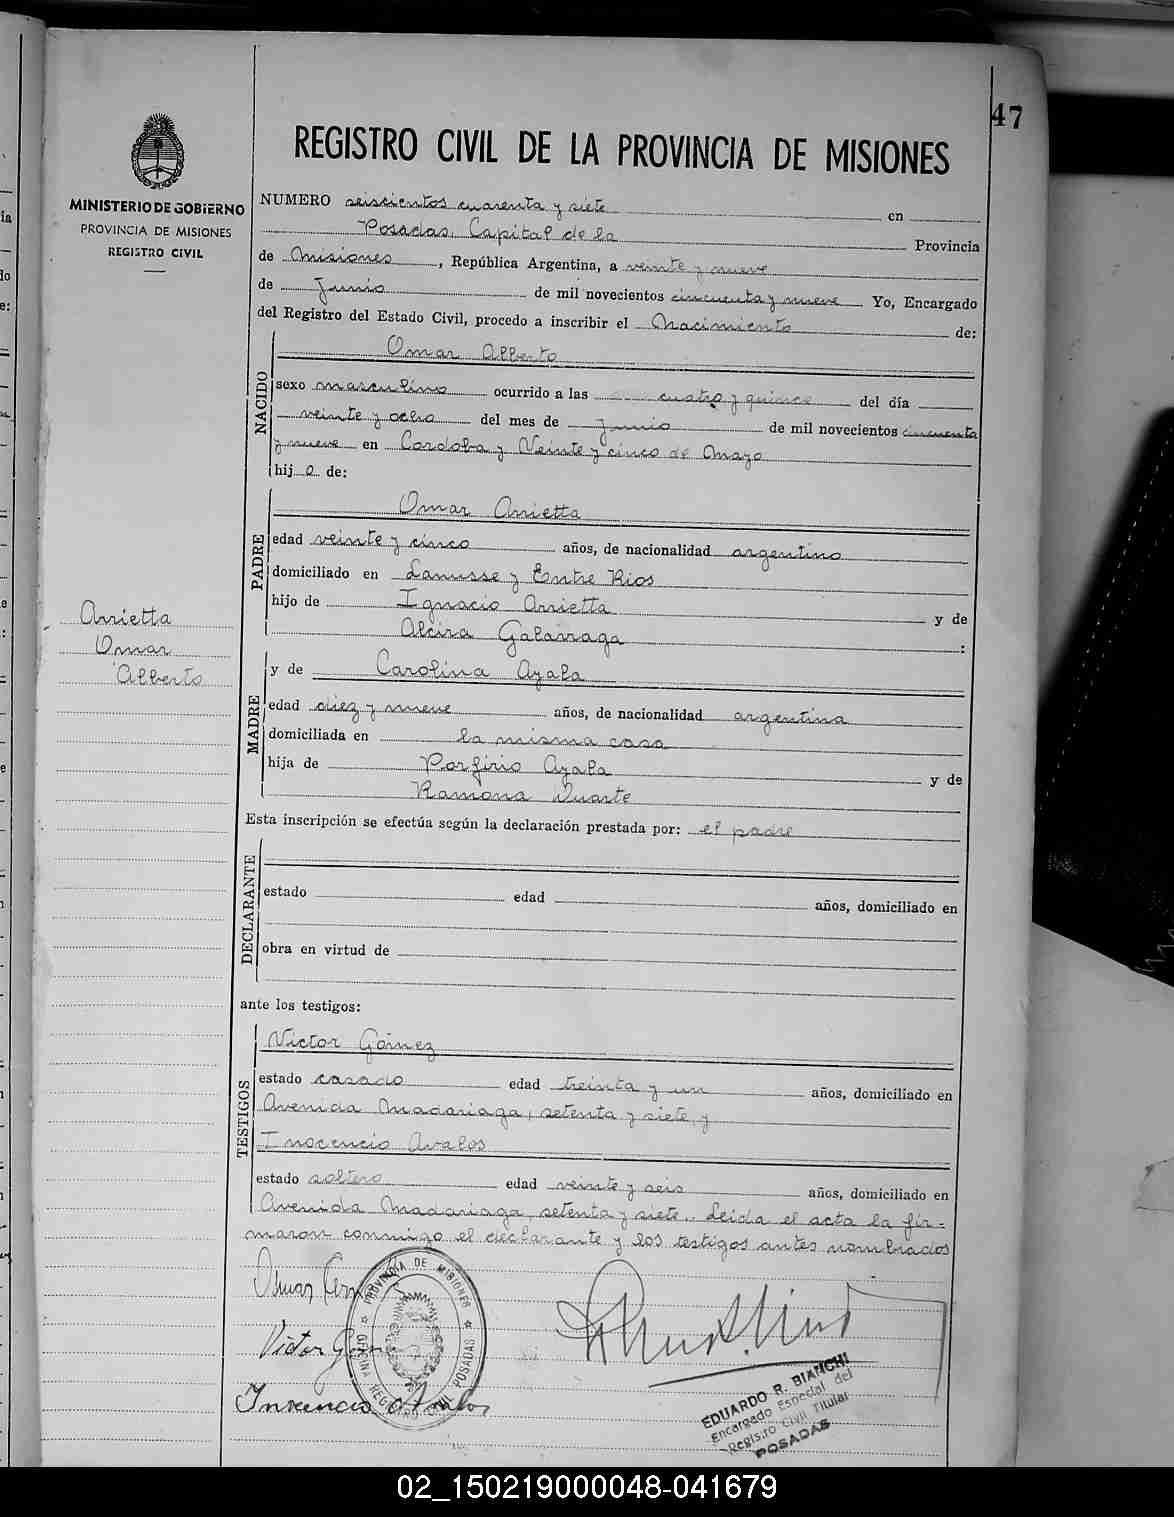 47
REGISTRO CIVIL DE LA PROVINCIA DE MISIONES
MINISTERIO DE GOBIERNO
PROVINCIA DE MISIONES
REGISTRO CIVIL
NUMERO seiscientos cuarenta y siete en
Posadas, Capital de la Provincia
de Misiones, República Argentina, a veinte y nueve
de Junio de mil novecientos cincuenta y nueve Yo, Encargado
del Registro del Estado Civil, procedo a inscribir el Nacimiento de:
NACIDO
Omar Alberto
sexo masculino ocurrido a las cuatro y quince del día
veinte y ocho del mes de junio de mil novecientos cincuenta
y nueve en Cordoba y Veinte y cinco de Mayo
hijo de:
PADRE
Omar Arrietta
edad veinte y cinco años, de nacionalidad argentino
domiciliado en Lanusse y Entre Rios
hijo de Ignacio Arrietta y de
Alcira Galarraga :
Arrietta
Omar
Alberto
MADRE
y de Carolina Ayala
edad diez y nueve años, de nacionalidad argentina
domiciliada en la misma casa
hija de Porfirio Ayala y de
Ramona Duarte
Esta inscripción se efectúa según la declaración prestada por: el padre
DECLARANTE
estado edad años, domiciliado en
obra en virtud de
ante los testigos:
TESTIGOS
Victor Gómez
estado casado edad treinta y un años, domiciliado en
Avenida Madariaga, setenta y siete, y
Inocencio Avalos
estado soltero edad veinte y seis años, domiciliado en
Avenida Madariaga, setenta y siete.. Leida el acta la fir=
maron conmigo el declarante y los testigos antes nombrados
Omar
Victor
PROVINCIA DE MISIONES
OFICINA REGISTRO CIVIL POSADAS
EDUARDO R. BIANCHI
Encargado Especial del
Registro Civil Titular
POSADAS
02_150219000048-041679